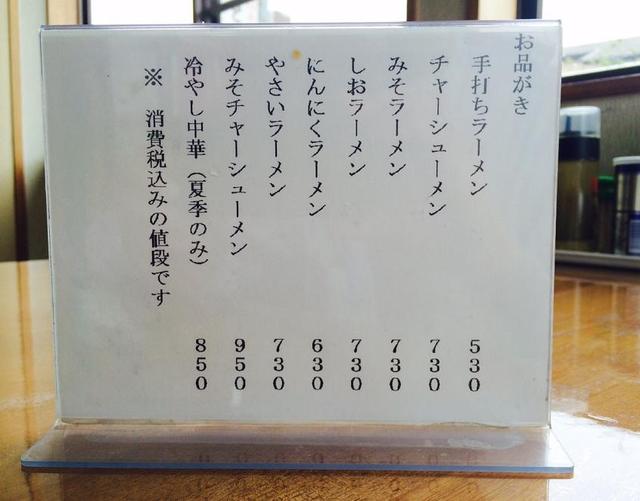 お品がき
手打ちラーメン 530
チャーシューメン 730
みそラーメン 730
しおラーメン 730
にんにくラーメン 630
やさいラーメン 730
みそチャーシューメン 950
冷やし中華（夏季のみ） 850
※ 消費税込みの値段です